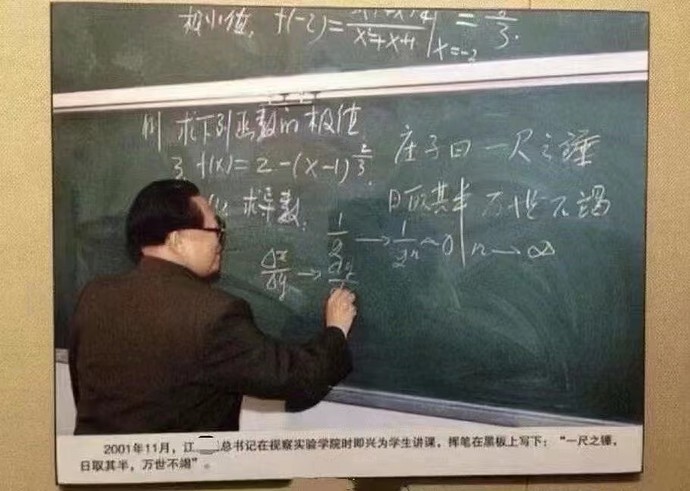 极小值, f(-2)=x²+x+4/x²+x+1|x=-2 = 2/3.
例 求下列函数的极值
3. f(x)=2-(x-1)^2/3.
求导数:
庄子曰 一尺之锤
日取其半 万世不竭
1/2 → 1/2ⁿ ~ 0 | n → ∞
Δx/Δy → dy/
2001年11月,江 总书记在视察实验学院时即兴为学生讲课,挥笔在黑板上写下:“一尺之锤,
日取其半,万世不竭”。